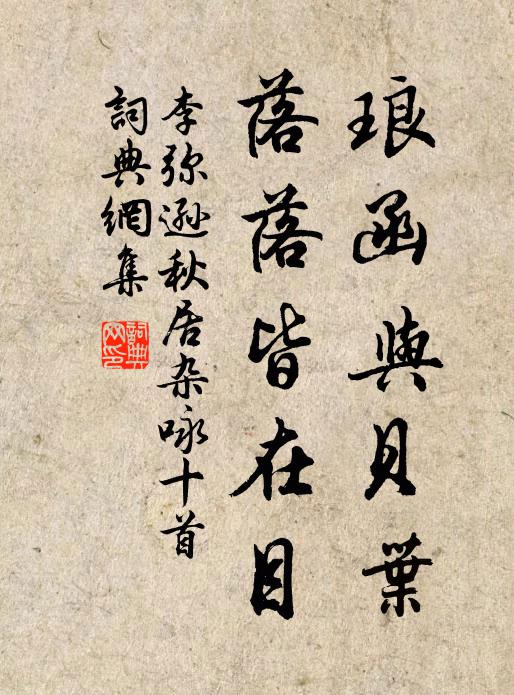 琅函與貝葉
落落皆在目
李弥遜秋居杂咏十首
詞典網集
詞典
网印